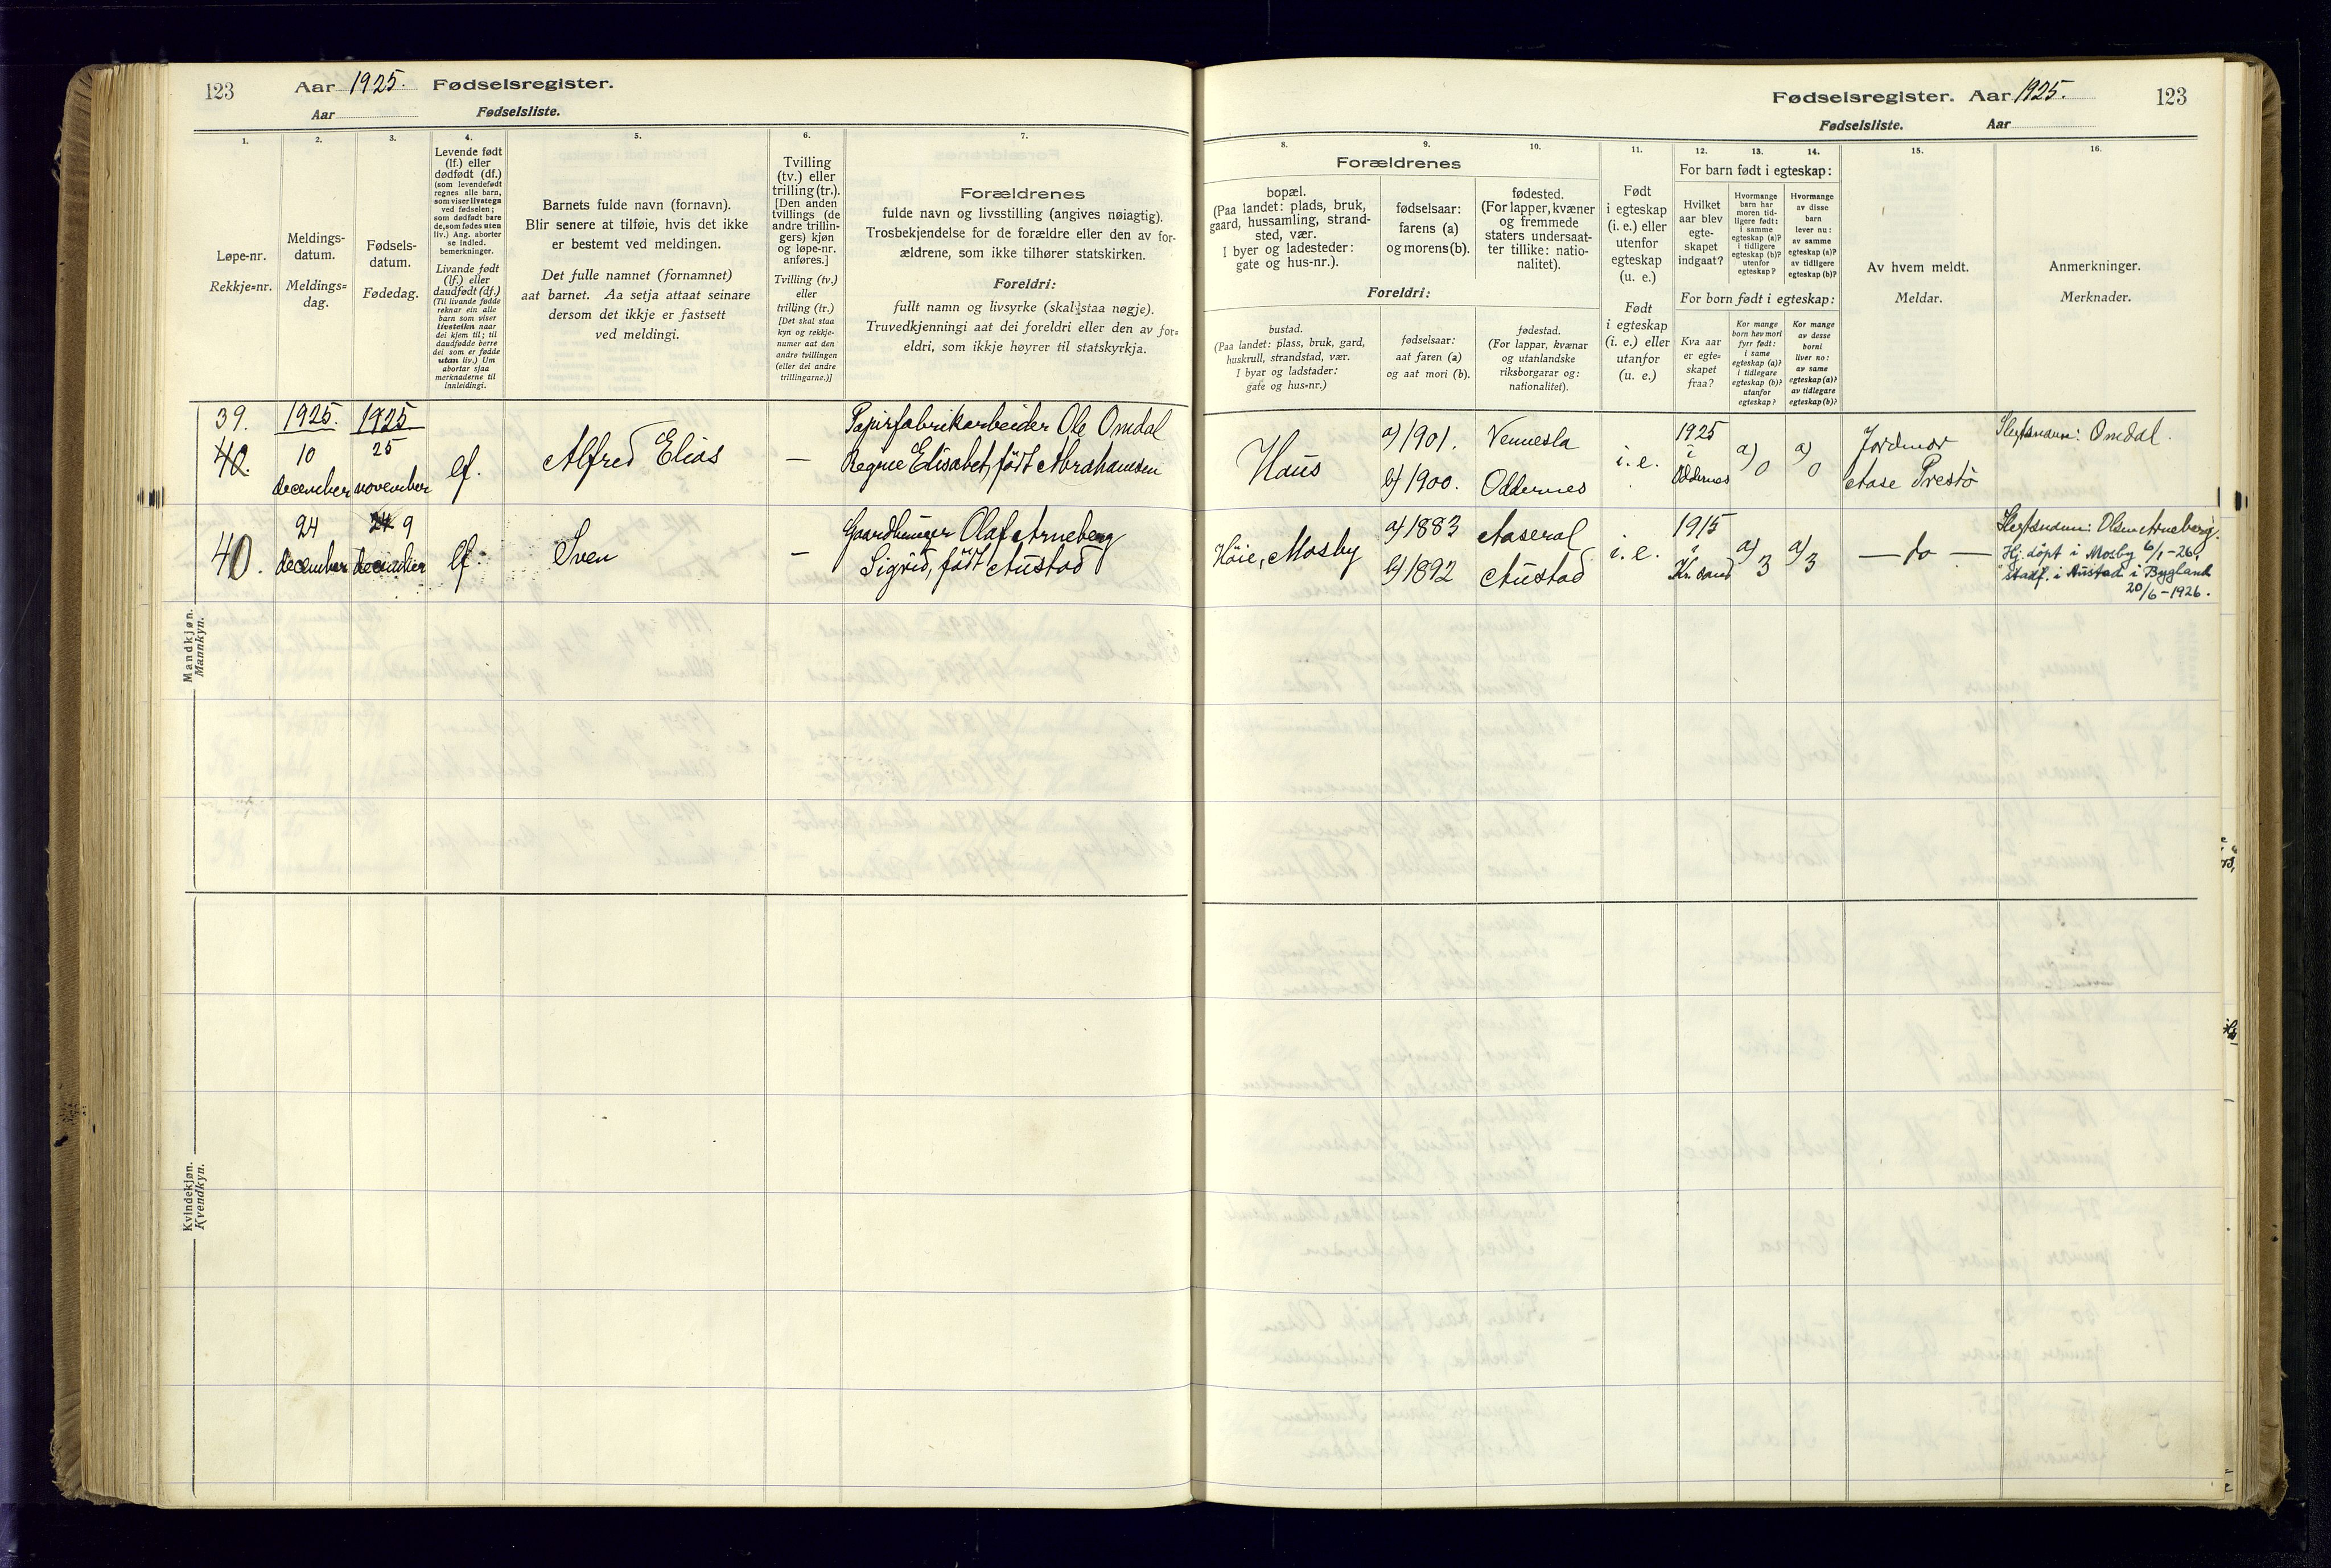 123
Aar 1925. Fødselsregister.
Aar Fødselsliste.
1. 2. 3. 4. 5. 6. 7.
Løpe-nr.
Rekkje-nr.
Meldings-
datum.
Meldings-
dag.
Fødsels-
datum.
Fødedag.
Levende født
(lf.) eller
dødfødt (df.)
(som levendefødt
regnes alle barn,
som viser livstegn
ved fødselen;
som dødfødt bare
de, som fødes uten
liv.) Ang. aborter
se indled.
bemerkninger.
Livande født
(lf.) eller
daudfødt (df.)
(Til livande fødde
reknar ein alle
barn som viser
livsteikn naar
dei kjem til; til
daudfødde berre
dei som er fødde
utan liv.) Um
abortar sjaa
merknaderne til
innleidingi.
Barnets fulde navn (fornavn).
Blir senere at tilføie, hvis det ikke
er bestemt ved meldingen.
Det fulle namnet (fornamnet)
aat barnet. Aa setja attaat seinare
dersom det ikkje er fastsett
ved meldingi.
Tvilling
(tv.) eller
trilling (tr.).
[Den anden
tvillings (de
andre trillin-
gers) kjøn
og løpe-nr.
anføres.]
Tvilling (tv.)
eller
trilling (tr.)
[Det skal staa
kyn og rekkje-
numer aat den
andre tvillingen
(eller dei andre
trillingarne.)]
Forældrenes
fulde navn og livsstilling (angives nøiagtig).
Trosbekjendelse for de forældre eller den av for-
ældrene, som ikke tilhører statskirken.
Foreldri:
fullt namn og livsyrke (skal staa nøgje).
Truvedkjenningi aat dei foreldri eller den av for-
eldri, som ikkje høyrer til statskyrkja.
Mandkjøn.
Mannkyn.
39.
40.
1925.
10
december
1925
25
november
lf.
Alfred Elias
—
Papirfabrikarbeider Ole Omdal
Regine Elisabet, født Abrahamsen
40.
24
december
24 9
december
lf.
Sven
—
Gaardbruger Olaf Arneberg
Sigrid, født Austad
Kvindekjøn.
Kvendkyn.
Fødselsregister. Aar 1925. 123
Fødselsliste. Aar
8. 9. 10. 11. 12. 13. 14. 15. 16.
Forældrenes
bopæl.
(Paa landet: plads, bruk,
gaard, hussamling, strand-
sted, vær.
I byer og ladesteder:
gate og hus-nr.).
fødselsaar:
farens (a)
og morens (b).
fødested.
(For lapper, kvæner
og fremmede
staters undersaat-
ter tillike: natio-
nalitet).
Foreldri:
bustad.
(Paa landet: plass, bruk, gard,
huskrull, strandstad, vær.
I byar og ladstader:
gate og hus-nr.)
fødselsaar:
aat faren (a)
og aat mori (b).
fødestad.
(For lappar, kvænar
og utanlandske
riksborgarar og:
nationalitet).
Født
i egteskap
(i. e.) eller
utenfor
egteskap
(u. e.)
Født
i egteskap
(i. e.) eller
utanfor
(u. e.)
For barn født i egteskap:
Hvilket
aar blev
egte-
skapet
indgaat?
Hvormange
barn har
moren tid-
ligere født:
i samme
egteskap (a)?
i tidligere
egteskap (b)?
utenfor
egteskap?
Hvormange
av disse
barn
lever nu:
av samme
egteskap (a)?
av tidligere
egteskap (b)?
For born født i egteskap:
Kva aar
er egte-
skapet
fraa?
Kor mange
born hev mori
fyrr født:
i same
egteskap (a)?
i tidlegare
egteskap (b)?
utanfor
egteskap?
Kor mange
av desse
borni
liver no:
av same
egteskap (a)?
av tidlegare
egteskap (b)?
Av hvem meldt.
Meldar.
Anmerkninger.
Merknader.
Haus
a) 1901.
b) 1900.
Vennesla
Oddernes
i. e.
1925
i
Oddernes
a) 0
a) 0
Jordmor
Aase Prestö
Slegtsnavn: Omdal.
Höie, Mosby
a) 1883
b) 1892
Aaseral
Austad
i. e.
1915
i
Kr. sand
a) 3
a) 3
— do —
Slegtsnavn: Olsen Arneberg.
Hj. döpt i Mosby 6/1-26,
stadf. i Austad i Bygland
20/6-1926.